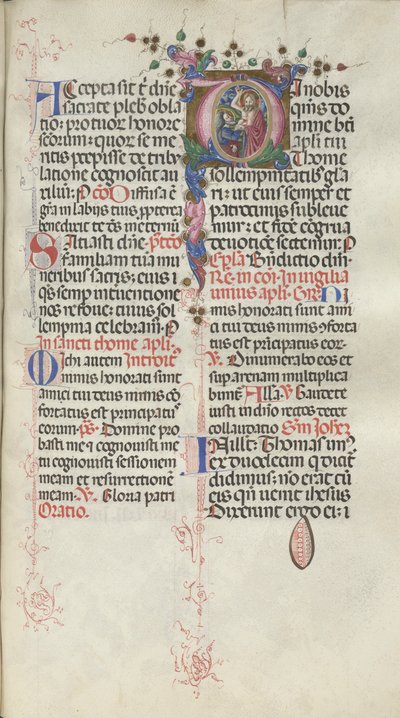 Accepta sit t dñe
sacrate pleb obla
tio: pro tuor honore
scorum: quor se me
ritis percepisse de trib
latione cognoscit au
xiliũ: P cõ Diffusa ẽ
gr̃a in labiis tuis propterea
benedixit te ds̃ in eternũ
Satiasti dñe Pt cõ
familiam tuã mu
neribus sacris: eius
qs semp interuentione
nos refoue: cuius sol
lempnia celebram. P
In sancti thome apli.
Michi autem Introit
nimis honorati sunt
amici tui deus nimis cõ
fortatus est principatus
eorum. ps. Domine pro
basti me et cognouisti me
tu cognouisti sessionem
meam et resurrectionẽ
meam. V. Gloria patri
Oratio.
Da nobis
qs do
mine bti
apli tui
Thome
sollempnitatib gla
ri: ut eius semper et
patrociniis subleue
mur: et fidẽ congrua
deuotione sectemur. P
Epla Bñdictio dm
Rñ in cõi In uigilia
unius apli. Gr. Ni
mis honorati sunt ami
ci tui deus nimis cõforta
tus est prĩcipatus eor.
V. Dinumerabo eos et
sup arenam multiplica
bunt Alla V Gaudete
iusti in dño rectos decet
collaudatio Sm Johez
In illo t. Thomas un
ex duodecim q dicit
didimus: nõ erat cũ
eis qñ uenit ihesus
Dixerunt ergo ei: i